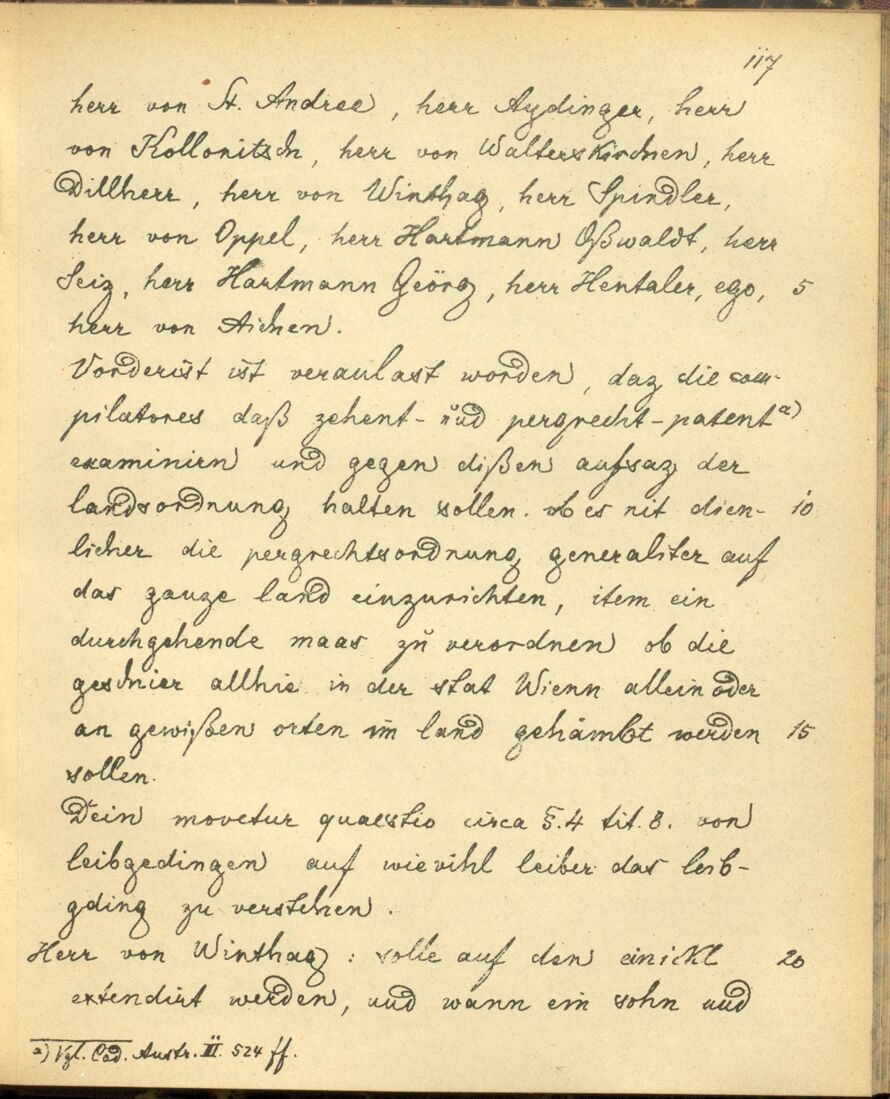 117
herr von St. Andree, herr Aydinger, herr
von Kollonitsch, herr von Walterskirchen, herr
Dillherr, herr von Winthag, herr Spindler,
herr von Oppel, herr Hartmann Oßwaldt, herr
Seiz, herr Hartmann Geörg, herr Hentaler, ego, 5
herr von Aichen.
Vorderist ist veranlast worden, daz die com-
pilatores daß zehent- und pergrecht-patent a)
examinirn und gegen dißen aufsaz der
landsordnung halten sollen. ob es nit dien- 10
licher die pergrechtsordnung generaliter auf
das ganze land einzurichten, item ein
durchgehende maas zu verordnen ob die
geschier allhie in der stat Wienn allein oder
an gewißen orten im land gehämbt werden 15
sollen.
Dein movetur quaestio circa §. 4 tit. 8. von
leibgedingen auf wievihl leiber das leib-
gding zu verstehen.
Herr von Winthag: solle auf den einickl 20
extendirt werden, und wann ein sohn und
a) Vgl. Cod. Austr. II. 524 ff.